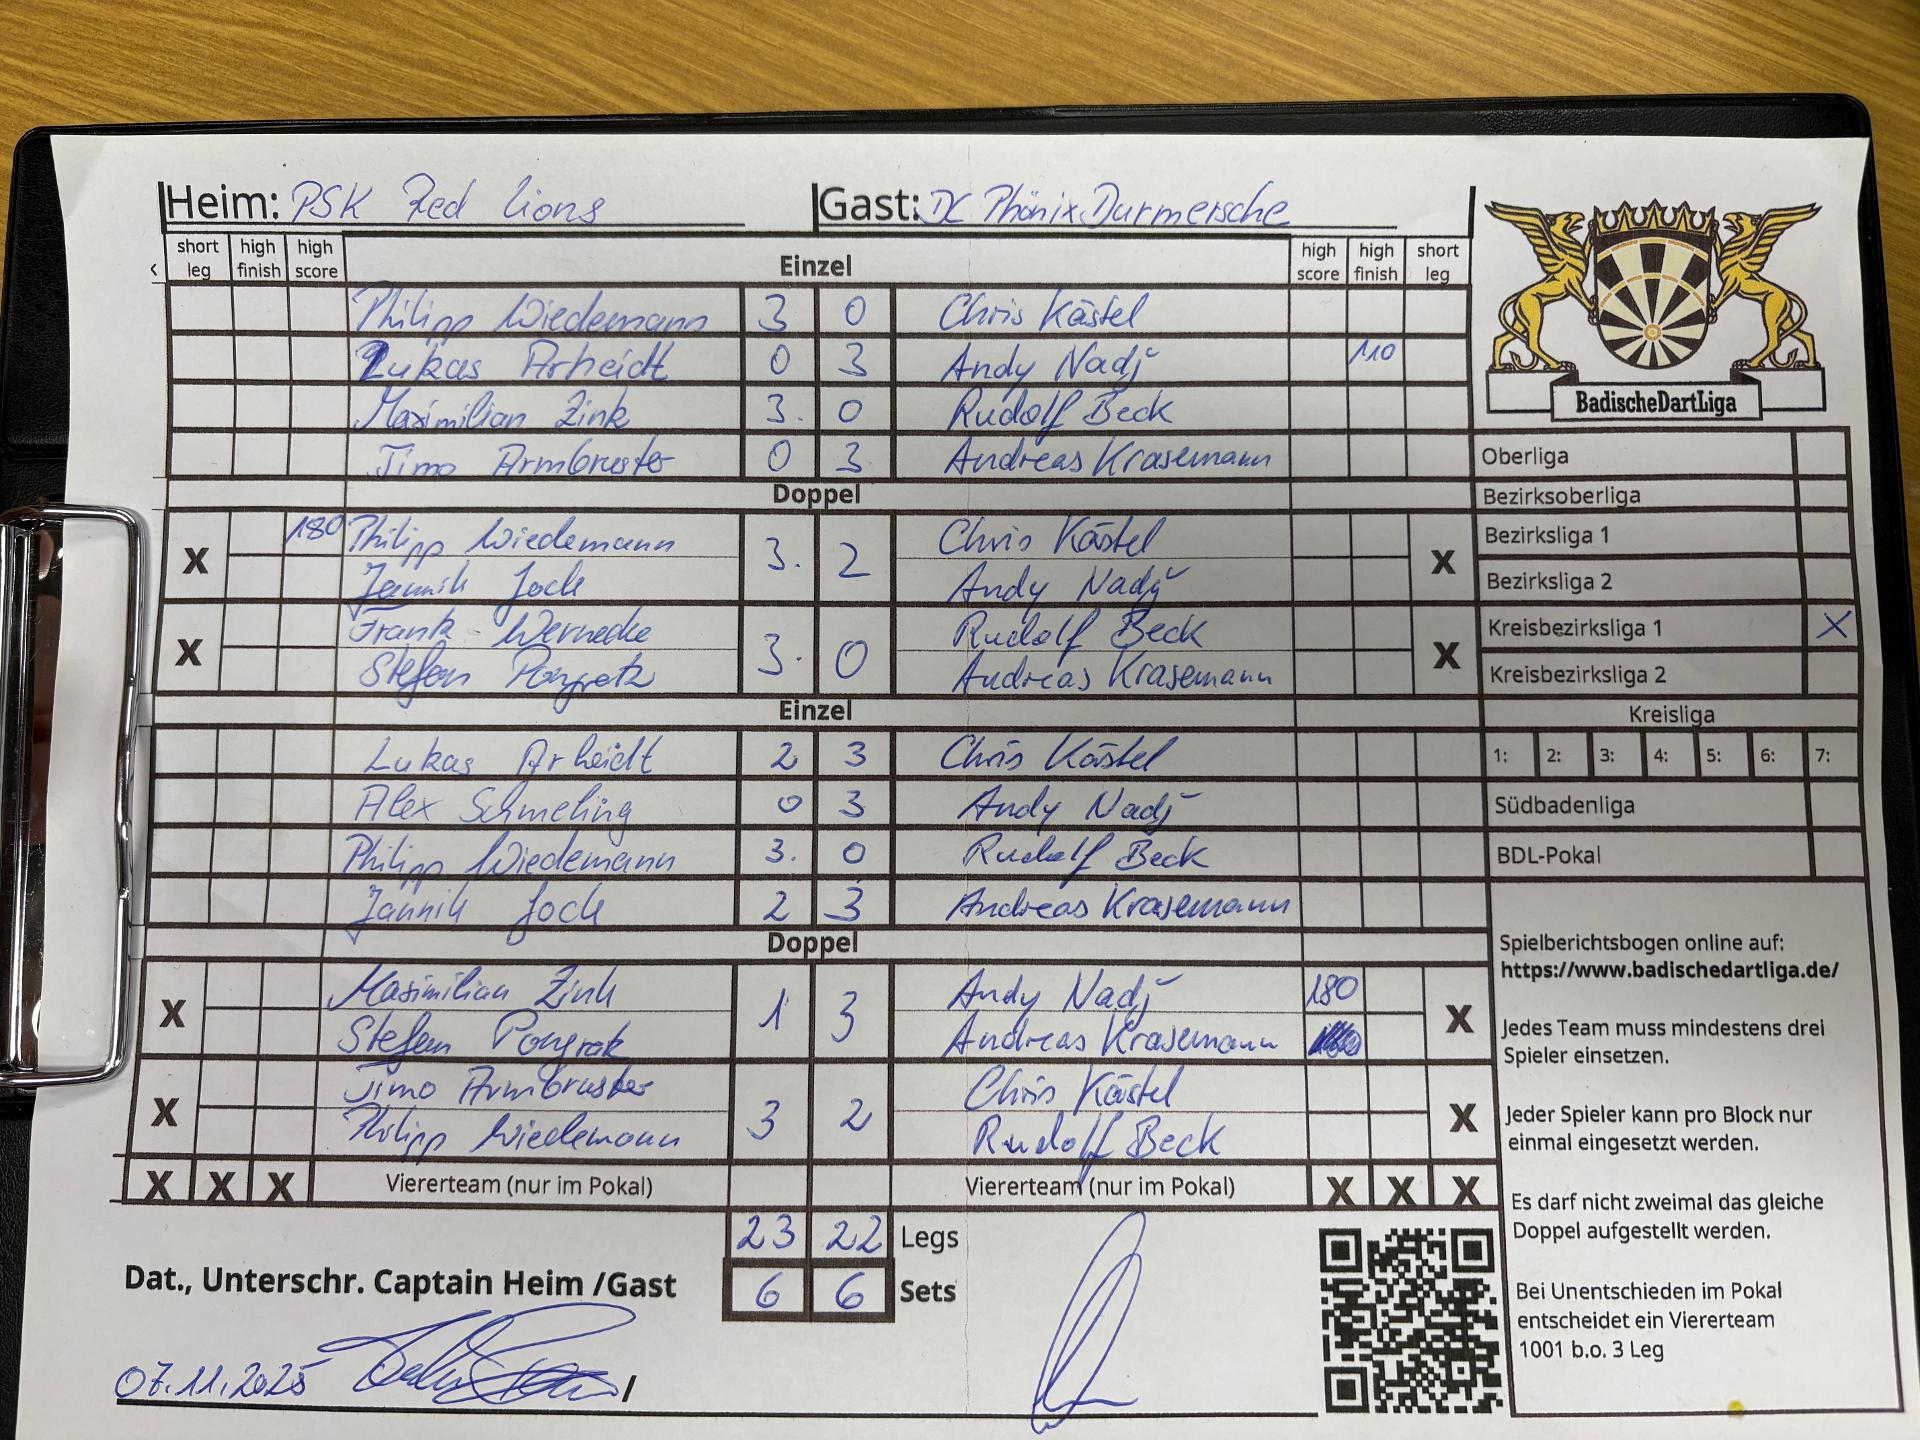 Heim: PSK Red Lions Gast: DC Phönix Durmersche
short leg high finish high score Einzel high score high finish short leg
Philipp Wiedemann 3 0 Chris Kästel
Lukas Arheidt 0 3 Andy Nadj 110
Maximilian Zink 3. 0 Rudolf Beck
Timo Armbruster 0 3 Andreas Krasemann
Doppel
X 180 Philipp Wiedemann 3. 2 Chris Kästel X
Jannik Jock Andy Nadj
X Frank Wernecke 3. 0 Rudolf Beck X
Stefan Pongratz Andreas Krasemann
Einzel
Lukas Arheidt 2 3 Chris Kästel
Alex Schmeling 0 3 Andy Nadj
Philipp Wiedemann 3. 0 Rudolf Beck
Jannik Jock 2 3 Andreas Krasemann
Doppel
X Maximilian Zink 1 3 Andy Nadj 180 X
Stefan Andreas Krasemann
X Timo Armbruster 3 2 Chris Kästel X
Philipp Wiedemann Rudolf Beck
X X X Viererteam (nur im Pokal) Viererteam (nur im Pokal) X X X
23 22 Legs
Dat., Unterschr. Captain Heim /Gast 6 6 Sets
07.11.2025 /
BadischeDartLiga
Oberliga
Bezirksoberliga
Bezirksliga 1
Bezirksliga 2
Kreisbezirksliga 1 X
Kreisbezirksliga 2
Kreisliga
1: 2: 3: 4: 5: 6: 7:
Südbadenliga
BDL-Pokal
Spielberichtsbogen online auf:
https://www.badischedartliga.de/
Jedes Team muss mindestens drei
Spieler einsetzen.
Jeder Spieler kann pro Block nur
einmal eingesetzt werden.
Es darf nicht zweimal das gleiche
Doppel aufgestellt werden.
Bei Unentschieden im Pokal
entscheidet ein Viererteam
1001 b.o. 3 Leg